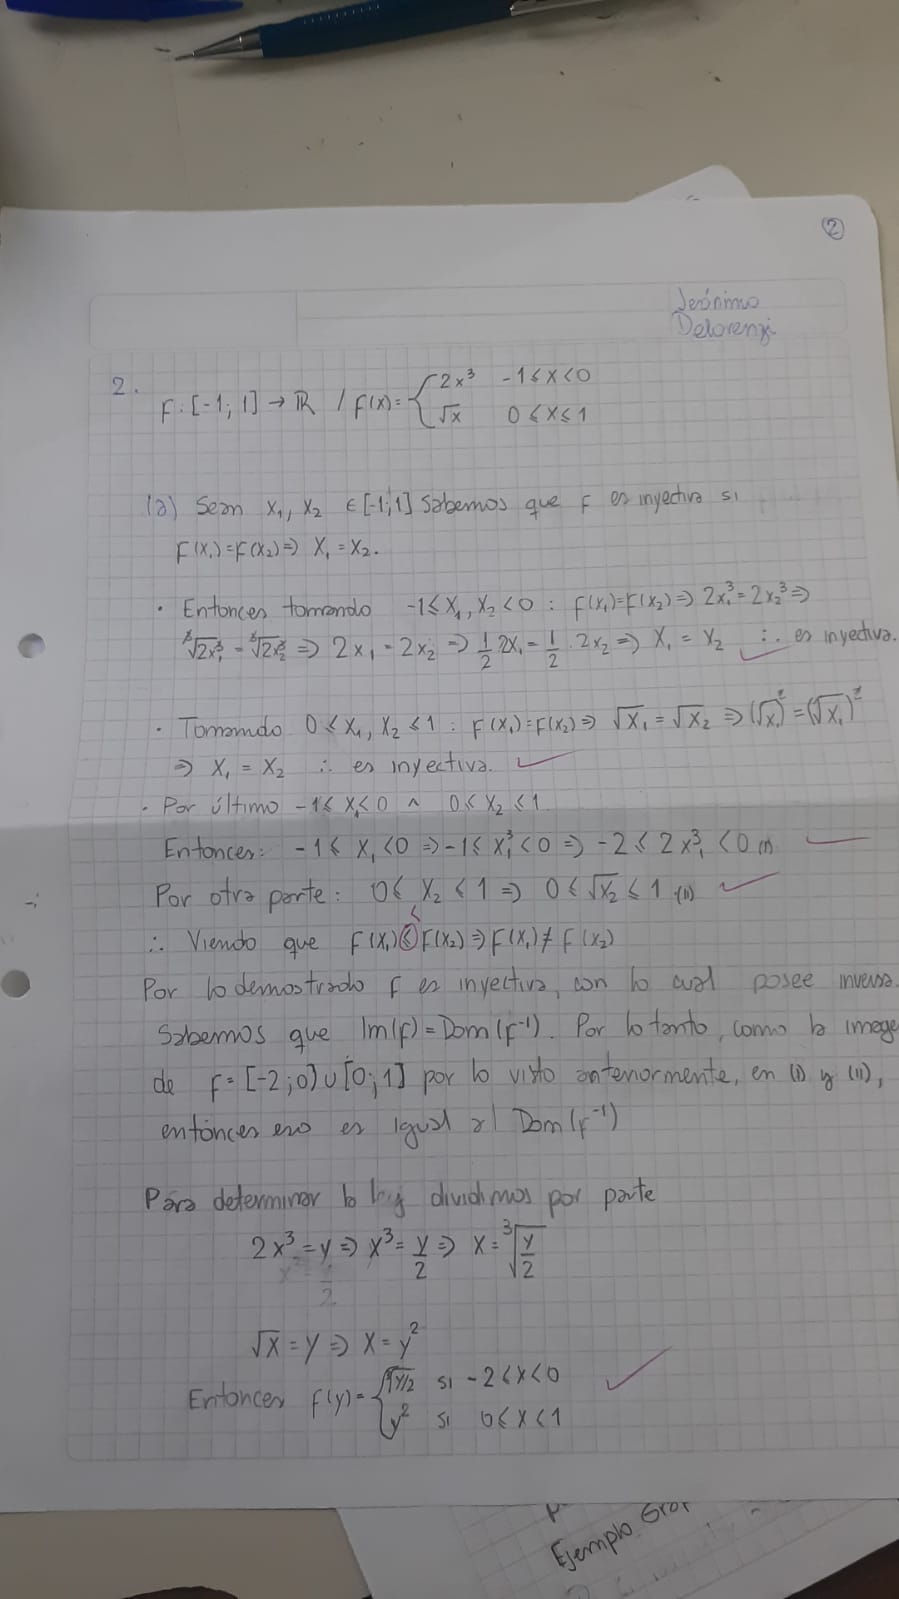 ②
Jerónimo
Delorenzi
2.
F: [-1; 1] → ℝ / f(x) = { 2x³ -1 ≤ x < 0
√x 0 ≤ x ≤ 1
(a) Sean x₁, x₂ ∈ [-1; 1] Sabemos que F es inyectiva si
F(x₁) = F(x₂) ⇒ x₁ = x₂.
· Entonces tomando -1 ≤ x₁, x₂ < 0 : f(x₁) = F(x₂) ⇒ 2x₁³ = 2x₂³ ⇒
∛2x₁³ = ∛2x₂³ ⇒ 2x₁ = 2x₂ ⇒ 1/2 2x₁ = 1/2 · 2x₂ ⇒ x₁ = x₂ ∴ es inyectiva.
· Tomando 0 ≤ x₁, x₂ ≤ 1 : F(x₁) = F(x₂) ⇒ √x₁ = √x₂ ⇒ (√x₁)² = (√x₁)²
⇒ x₁ = x₂ ∴ es inyectiva.
· Por último -1 ≤ x₁ < 0 ∧ 0 ≤ x₂ ≤ 1
Entonces: -1 ≤ x₁ < 0 ⇒ -1 ≤ x₁³ < 0 ⇒ -2 ≤ 2x₁³ < 0 (I)
Por otra parte: 0 ≤ x₂ < 1 ⇒ 0 ≤ √x₂ ≤ 1 (II)
<
∴ Viendo que F(x₁) ≤ F(x₂) ⇒ F(x₁) ≠ F(x₂)
Por lo demostrado f es inyectiva, con lo cual posee inversa.
Sabemos que Im(f) = Dom(f⁻¹). Por lo tanto, como la image
de F = [-2; 0) ∪ [0; 1] por lo visto anteriormente, en (I) y (II),
entonces eso es igual al Dom(f⁻¹)
Para determinar la ley dividimos por parte
2x³ = y ⇒ x³ = y/2 ⇒ x = ∛(y/2)
√x = y ⇒ x = y²
Entonces f(y) = { ∛y/2 si -2 < x < 0
y² si 0 ≤ x < 1
Ejemplo Graf